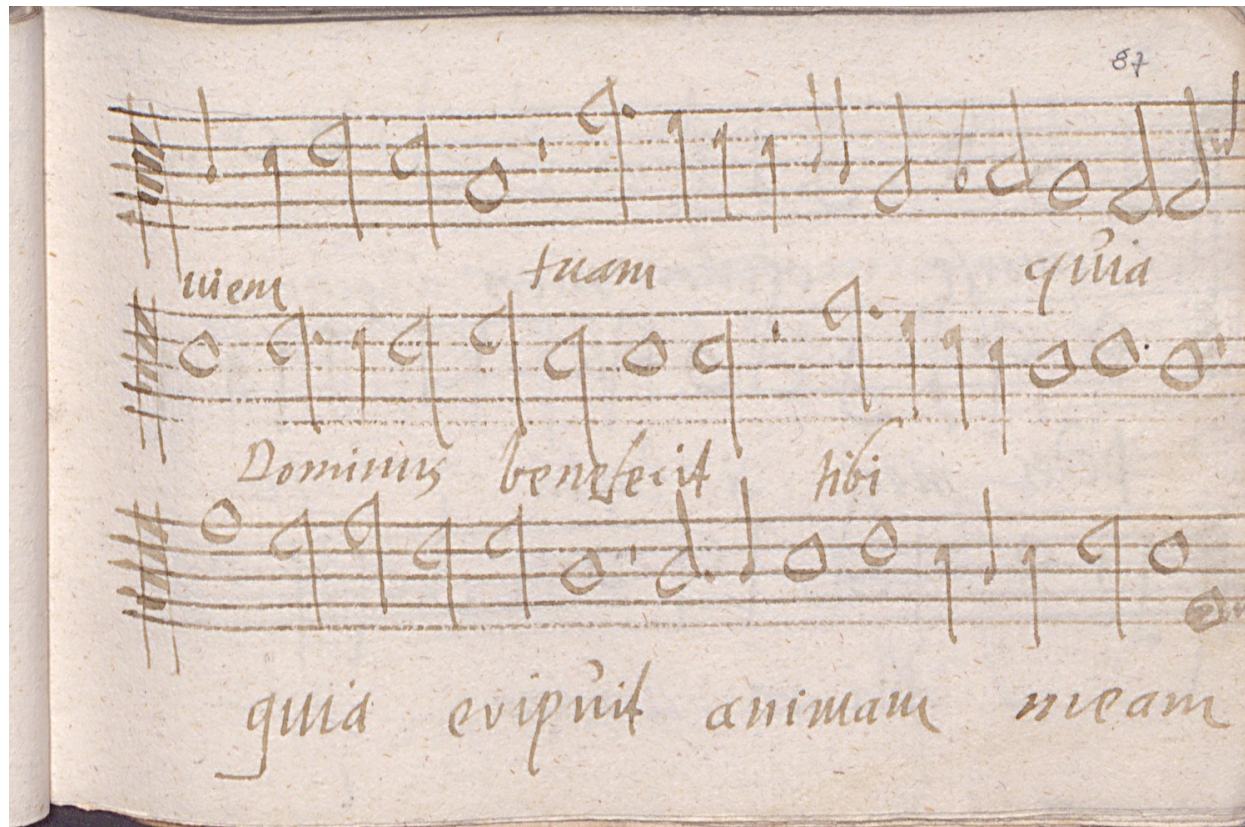 87
uiem tuam quia
Dominus benefecit tibi
quia eripuit animam meam